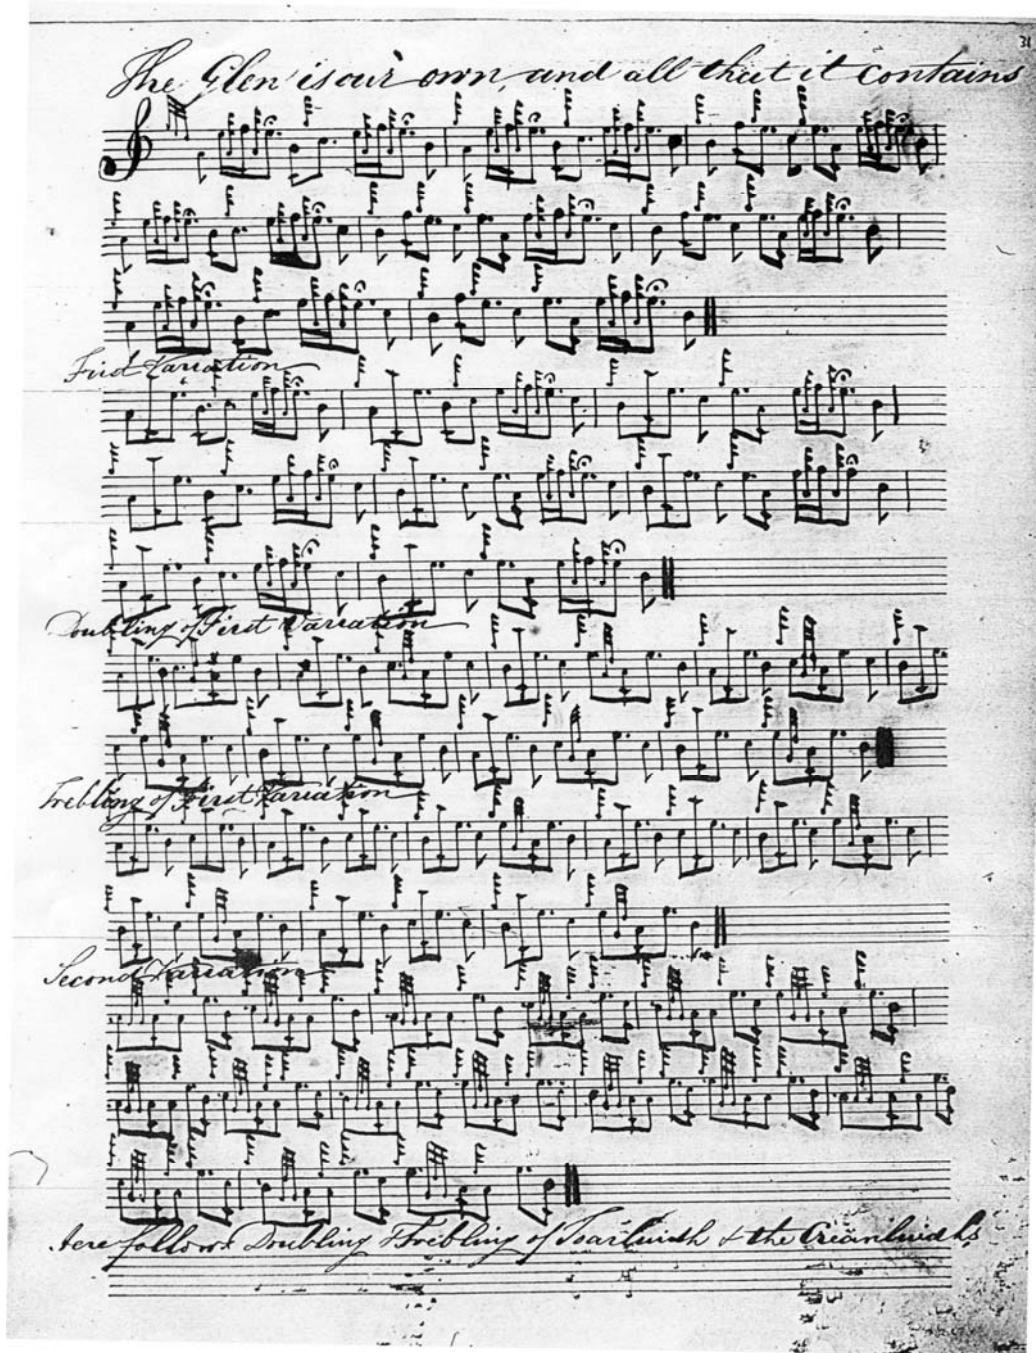 31
The Glen is our own, and all that it contains
First Variation
Doubling of First Variation
Trebling of First Variation
Second Variation
here follows Doubling & Trebling of Taorluidh & the Creanluidhs